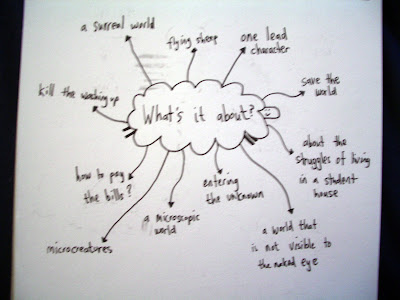 a surreal world
flying sheep
one lead
character
kill the washing up
What's it about?
save the
world
about the
struggles of living
in a student
house
how to pay
the bills?
entering
the unknown
a microscopic
world
a world that
is not visible to
the naked eye
microcreatures